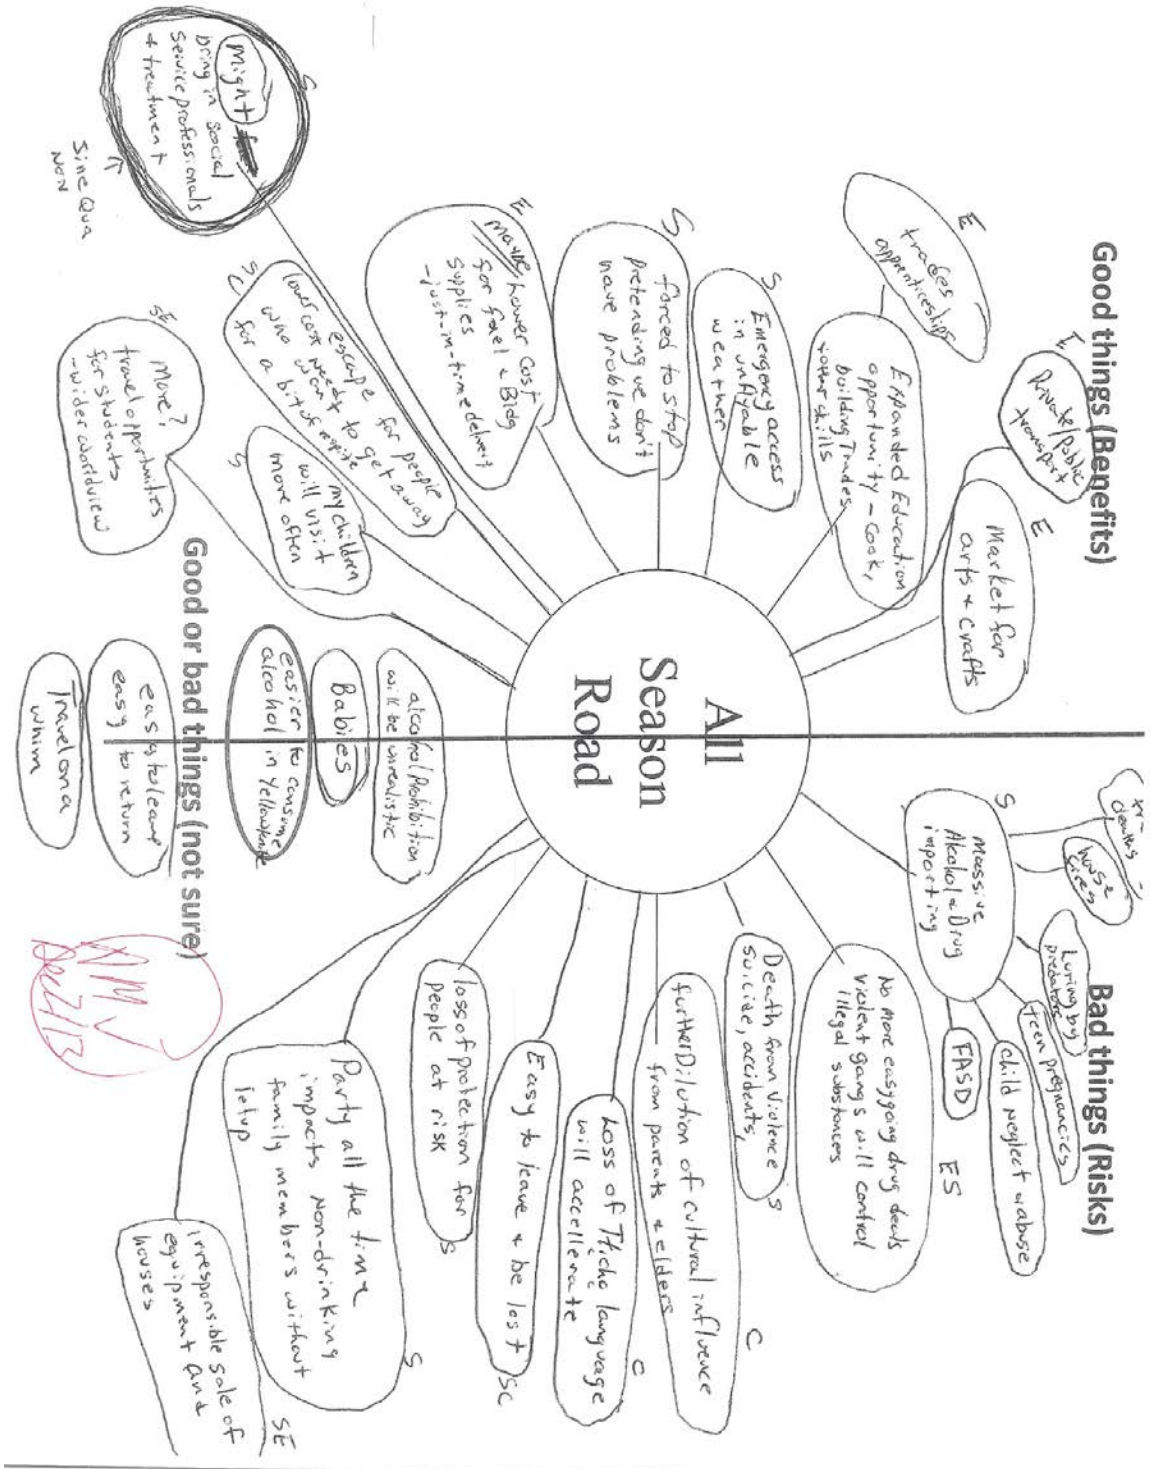 Good things (Benefits)
E
trades
apprenticeships
E
Private/public
transport
E
Market for
arts + crafts
Expanded Education
opportunity - cook,
building Trades
+ other skills
S
Emergency access
in unflyable
weather
S
forced to stop
pretending we don't
have problems
E
maybe Lower Cost
for fuel & Bldg
supplies
-just-in-time delivery
S
C
escape for people
lower cost
who want to get away
for a bit of respite
S
my children
will visit
more often
SE
More?
travel opportunities
for students
-wider worldview
S
Might
bring in social
service professionals
+ treatment
↑
Sine Qua
Non
All
Season
Road
Bad things (Risks)
deaths
house
fires
S
Massive
Alcohol & Drug
importing
Luring by
predators
teen pregnancies
child neglect & abuse
FASD
ES
No more easygoing drug deals
violent gangs will control
illegal substances
Death from violence
suicide, accidents,
S
C
further Dilution of cultural influence
from parents & elders
C
Loss of Tłįchǫ language
will accellerate
Easy to leave & be lost
SC
loss of protection for
people at risk
S
Party all the time
impacts Non-drinking
family members without
letup
S
SE
irresponsible sale of
equipment and
houses
Good or bad things (not sure)
alcohol Prohibition
will be unrealistic
Babies
easier to consume
alcohol in Yellowknife
easy to leave
easy to return
Travel on a
whim